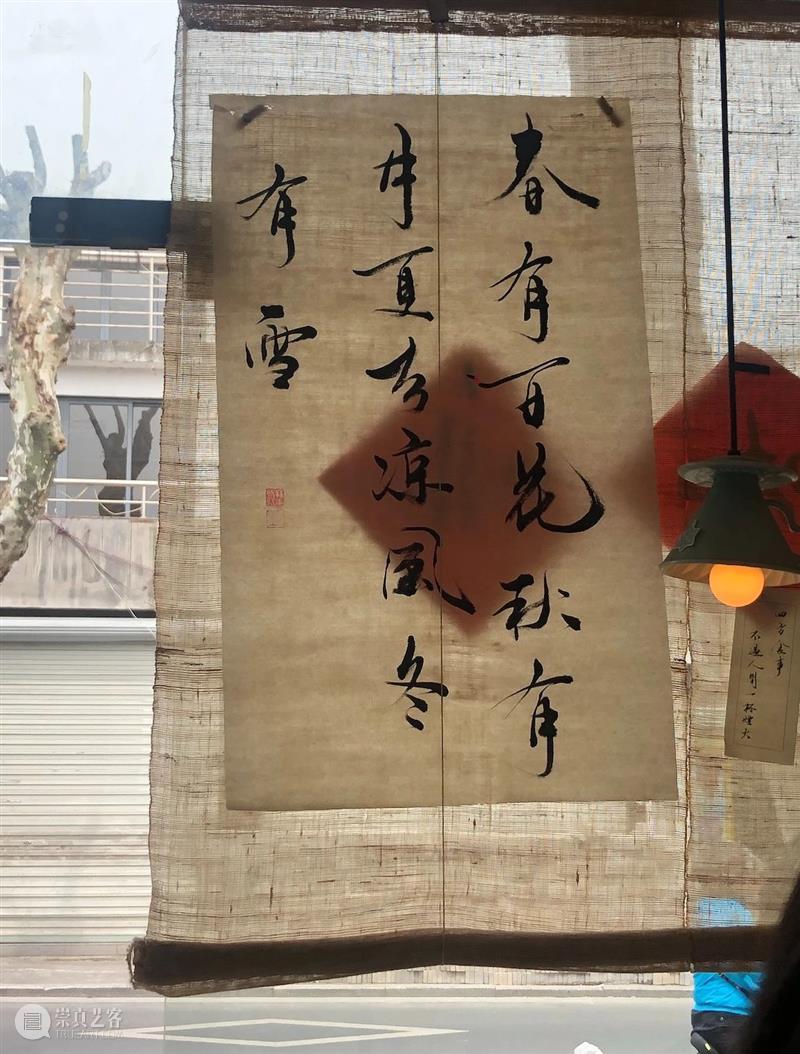 春有百花秋有
月夏有凉風冬
有雪
四方食事
不過人间一杯煙火
崇真艺客
TRUEART.COM